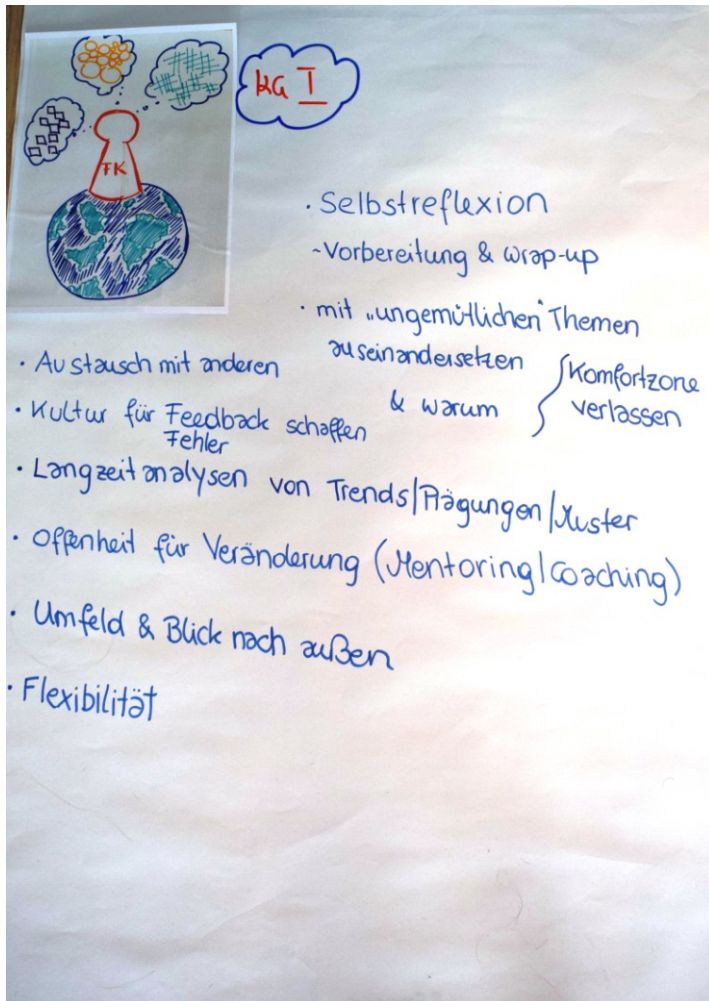 KG I
FK
• Selbstreflexion
-Vorbereitung & wrap-up
• mit „ungemütlichen" Themen
auseinandersetzen
& warum
Komfortzone
verlassen
• Austausch mit anderen
• Kultur für Feedback schaffen
Fehler
• Langzeitanalysen von Trends/Prägungen/Muster
• Offenheit für Veränderung (Mentoring/Coaching)
• Umfeld & Blick nach außen
• Flexibilität